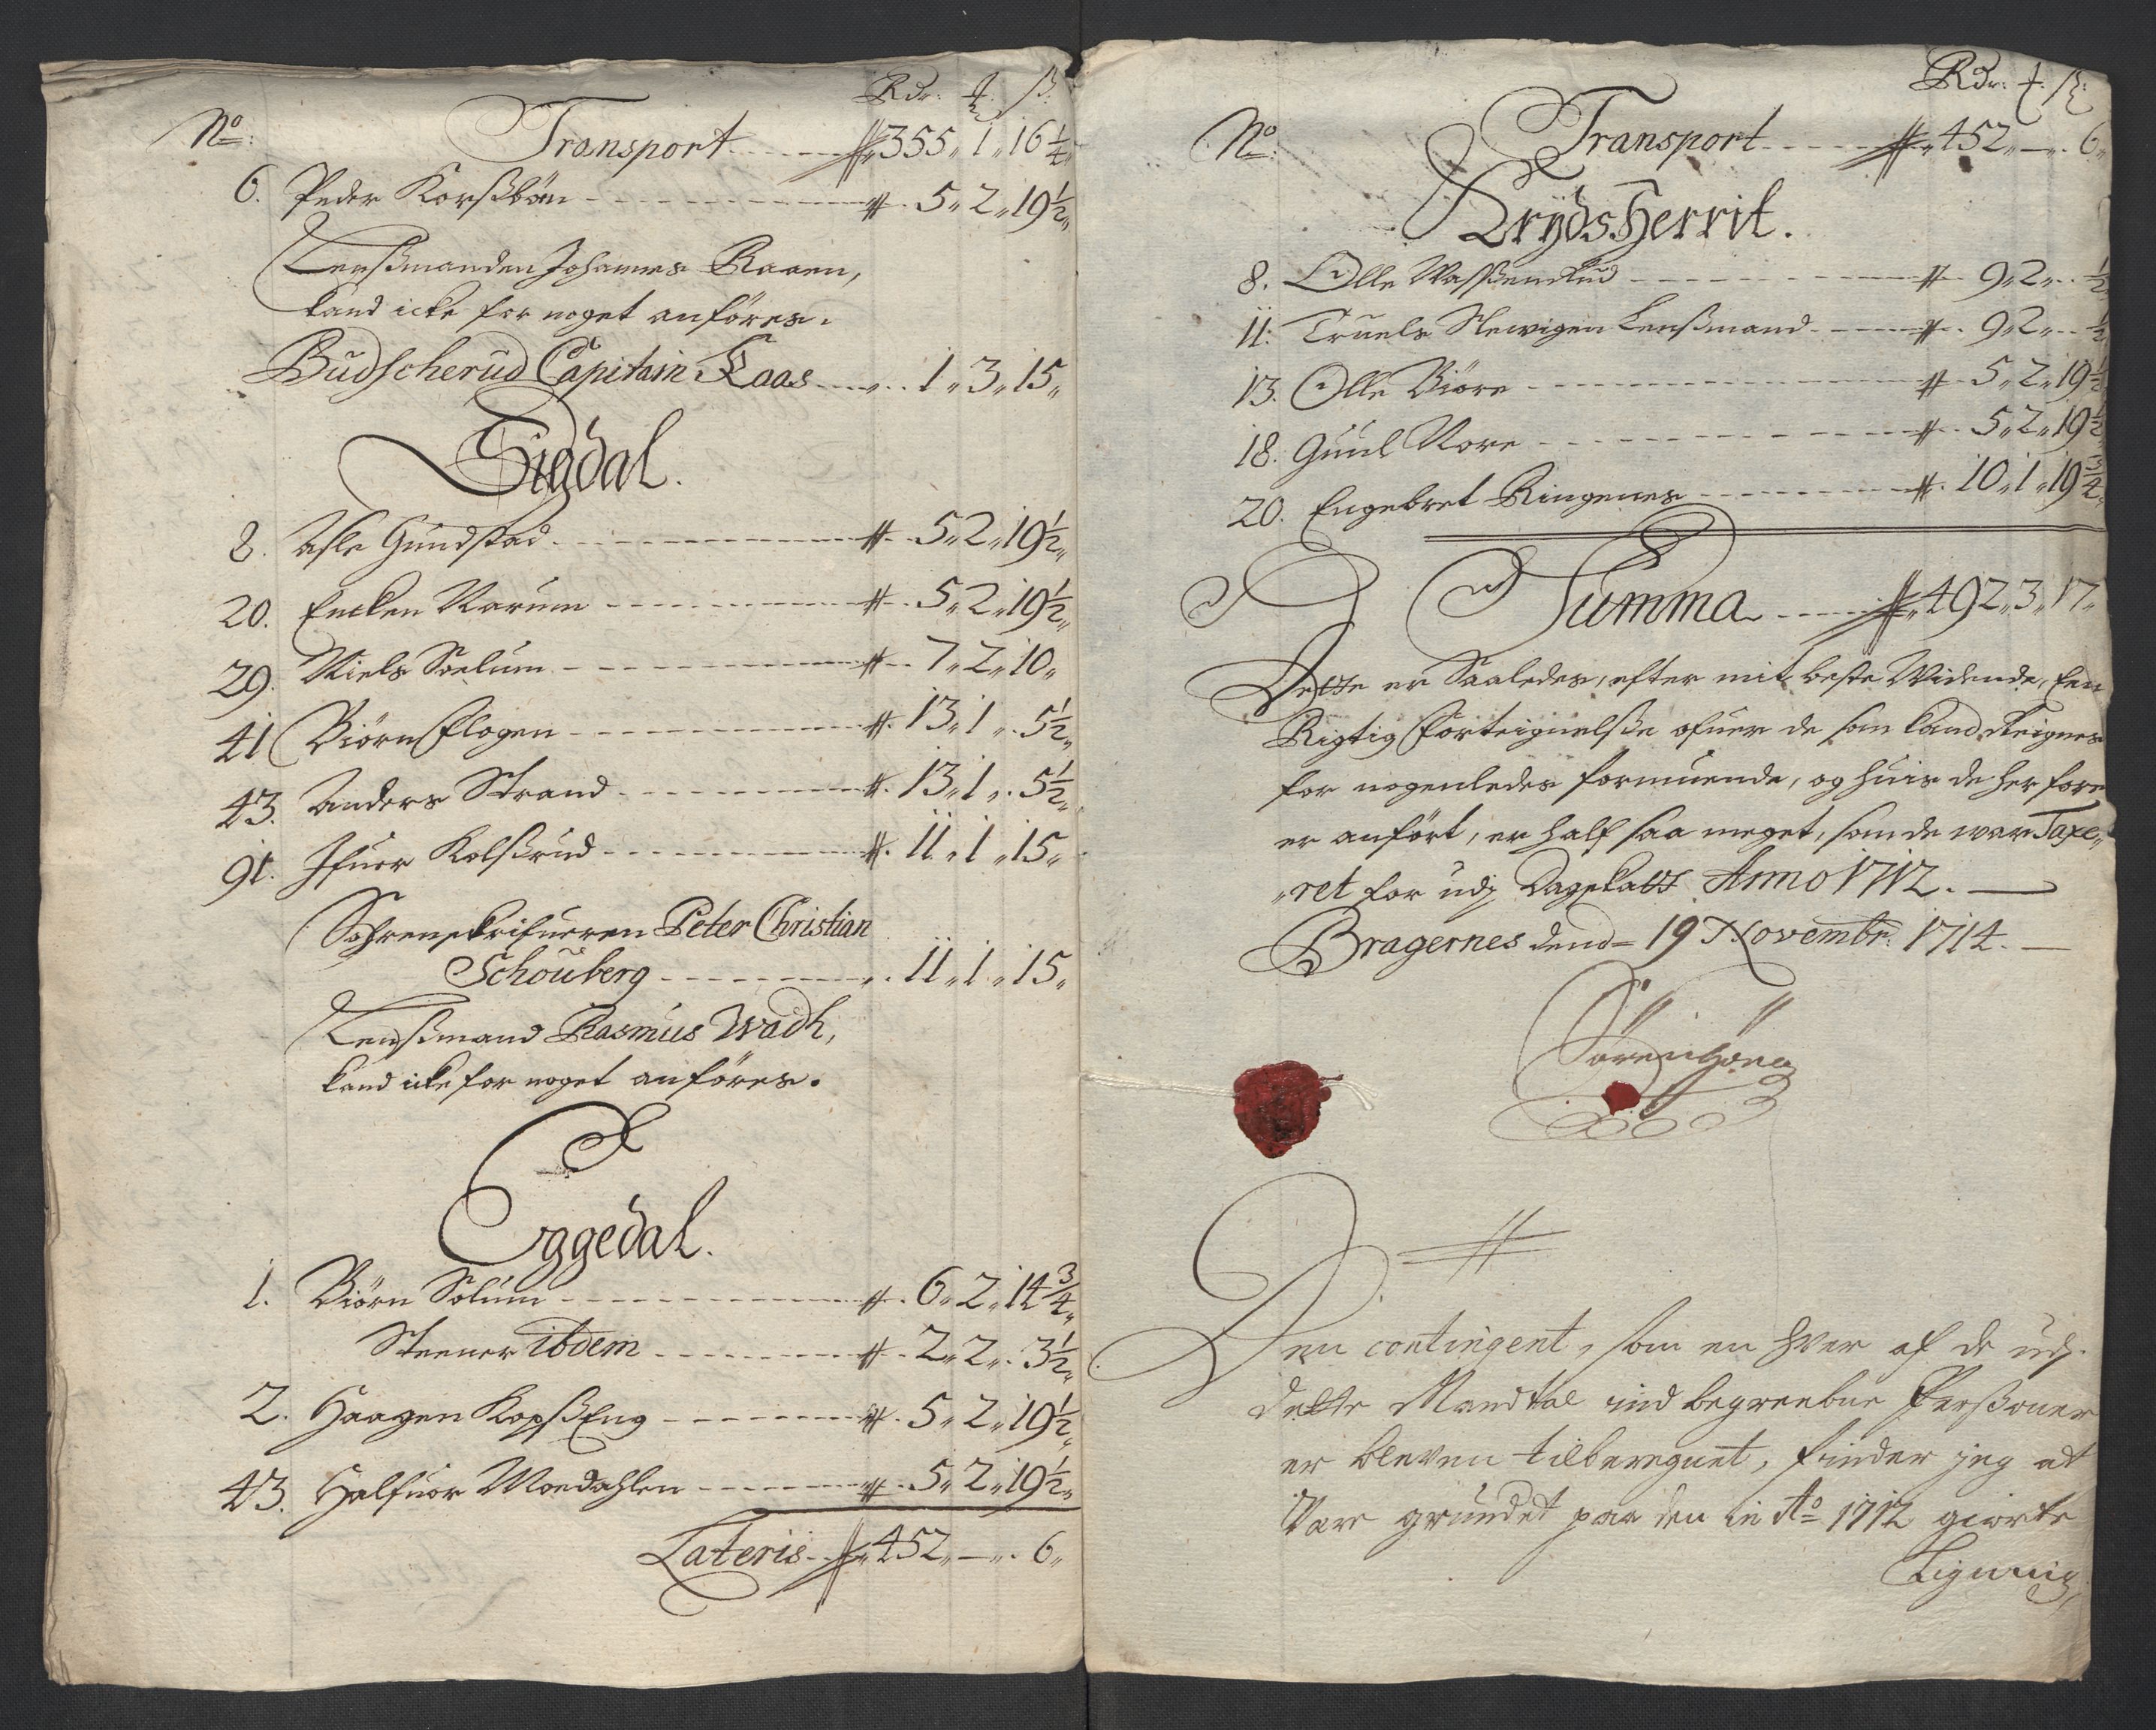 Rdr: ₰ ß:
No: Transport 355 " 1 " 16 1/4
6. Peder Korßbøn 5 " 2 " 19 1/2 "
Lensßmanden Johannes Raaen,
kand icke for noget anføres.
Budscherud Capitain Kaas 1 " 3 " 15 "
Sigdal.
8. Asle Gundstad 5 " 2 " 19 1/2 "
20. Encken Warum 5 " 2 " 19 1/2 "
29. Niels Soelum 7 " 2 " 10 "
41 Biørn Flogen 13 " 1 " 5 1/2 "
43. Anders Strand 13 " 1 " 5 1/2 "
91. Ifuer Kolsrud 11 " 1 " 15 "
Sohrenskrifueren Peter Christian
Schouberg 11 " 1 " 15 "
Lensßmand Rasmus Wadh,
kand icke for noget anføres.
Eggedal.
1. Biørn Solum 6 " 2 " 14 3/4 "
Steener ibdem 2 " 2 " 3 1/2 "
2. Haagen KopßEng 5 " 2 " 19 1/2 "
43. Halfuor Moedahlen 5 " 2 " 19 1/2 "
Lateris 452 " — " 6 "
Rdr: ₰ ß:
No: Transport 452 " — " 6 "
KrydsHerrit.
8. Olle Waßendrud 9 " 2 " 1/2
11: Truels Slewigen Lensßmand 9 " 2 " 1/2
13. Olle Biøre 5 " 2 " 19 1/2
18. Guul Nore 5 " 2 " 19 1/2
20. Engebret Ringenes 10 " 1 " 19 3/4 "
Summa 492 " 3 " 17 "
Dette er Saaledes, efter mit beste Widende, Een
Rigtig Forteignelse ofuer de som kand Reignes
for nogenledes formuende, og huis de her fore
er anført, er half saa meget, som de war Taxe,,
,,ret for udj Dagskatt Anno 1712. —
Bragernes dend= 19 Novembr: 1714. —
Den contingent, som en hver af de udj
dette Mandtal indbegreebne Perßoner
er bleven tilberegnet, finder jeg at
Vare grundet paa den in Ao 1712 giorte
Ligning,